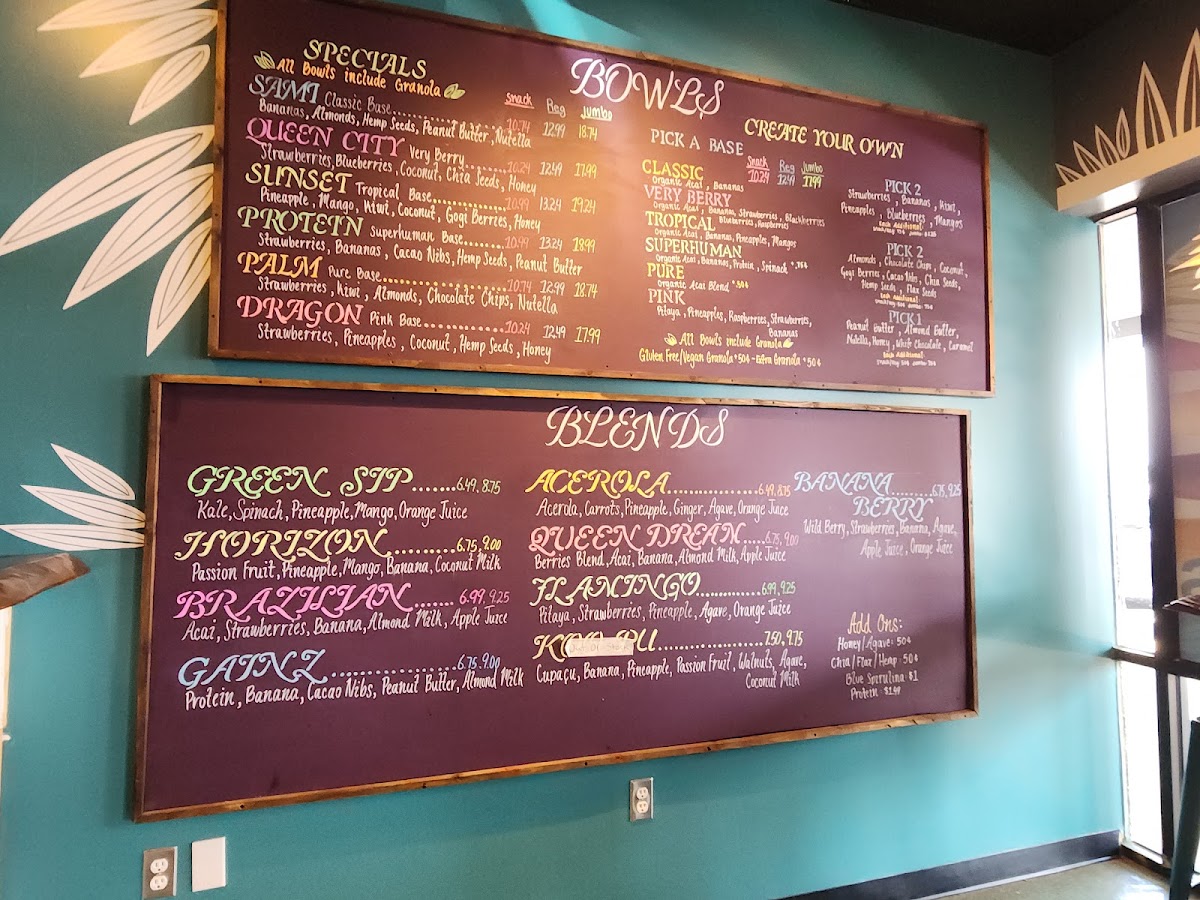 BOWLS
SPECIALS
All Bowls include Granola
snack Reg jumbo
SAMI Classic Base 10.74 12.99 18.74
Bananas, Almonds, Hemp Seeds, Peanut Butter, Nutella
QUEEN CITY Very Berry 10.24 12.49 17.99
Strawberries, Blueberries, Coconut, Chia Seeds, Honey
SUNSET Tropical Base 10.99 13.24 19.24
Pineapple, Mango, Kiwi, Coconut, Gogi Berries, Honey
PROTEIN Superhuman Base 10.99 13.24 18.99
Strawberries, Bananas, Cacao Nibs, Hemp Seeds, Peanut Butter
PALM Pure Base 10.74 12.99 18.74
Strawberries, Kiwi, Almonds, Chocolate Chips, Nutella
DRAGON Pink Base 10.24 12.49 17.99
Strawberries, Pineapples, Coconut, Hemp Seeds, Honey
CREATE YOUR OWN
PICK A BASE
Snack Reg Jumbo
CLASSIC 10.24 12.49 17.99
Organic Acai, Bananas
VERY BERRY
Organic Acai, Bananas, Strawberries, Blackberries
Blueberries, Raspberries
TROPICAL
Organic Acai, Bananas, Pineapples, Mangos
SUPERHUMAN
Organic Acai, Bananas, Protein, Spinach
PURE
Organic Acai Blend
PINK
Pitaya, Pineapples, Raspberries, Strawberries,
Bananas
All Bowls include Granola
Gluten Free/Vegan Granola +50¢ - Extra Granola +50¢
PICK 2
Strawberries, Bananas, Kiwi,
Pineapples, Blueberries, Mangos
Each Additional
PICK 2
Almonds, Chocolate Chips, Coconut,
Gogi Berries, Cacao Nibs, Chia Seeds,
Hemp Seeds, Flax Seeds
Each Additional
PICK 1
Peanut Butter, Almond Butter,
Nutella, Honey, White Chocolate, Caramel
Each Additional
BLENDS
GREEN SIP 6.49, 8.75
Kale, Spinach, Pineapple, Mango, Orange Juice
HORIZON 6.75, 9.00
Passion Fruit, Pineapple, Mango, Banana, Coconut Milk
BRAZILIAN 6.99, 9.25
Acai, Strawberries, Banana, Almond Milk, Apple Juice
GAINZ 6.75, 9.00
Protein, Banana, Cacao Nibs, Peanut Butter, Almond Milk
ACEROLA 6.49, 8.75
Acerola, Carrots, Pineapple, Ginger, Agave, Orange Juice
QUEEN DREAM 6.75, 9.00
Berries Blend, Acai, Banana, Almond Milk, Apple Juice
FLAMINGO 6.99, 9.25
Pitaya, Strawberries, Pineapple, Agave, Orange Juice
7.50, 9.75
Cupaçu, Banana, Pineapple, Passion Fruit, Walnuts, Agave,
Coconut Milk
BANANA 6.75, 9.25
BERRY
Wild Berry, Strawberries, Banana, Agave,
Apple Juice, Orange Juice
Add Ons:
Honey/Agave: 50¢
Chia/Flax/Hemp: 50¢
Blue Spirulina: $1
Protein: $1.49